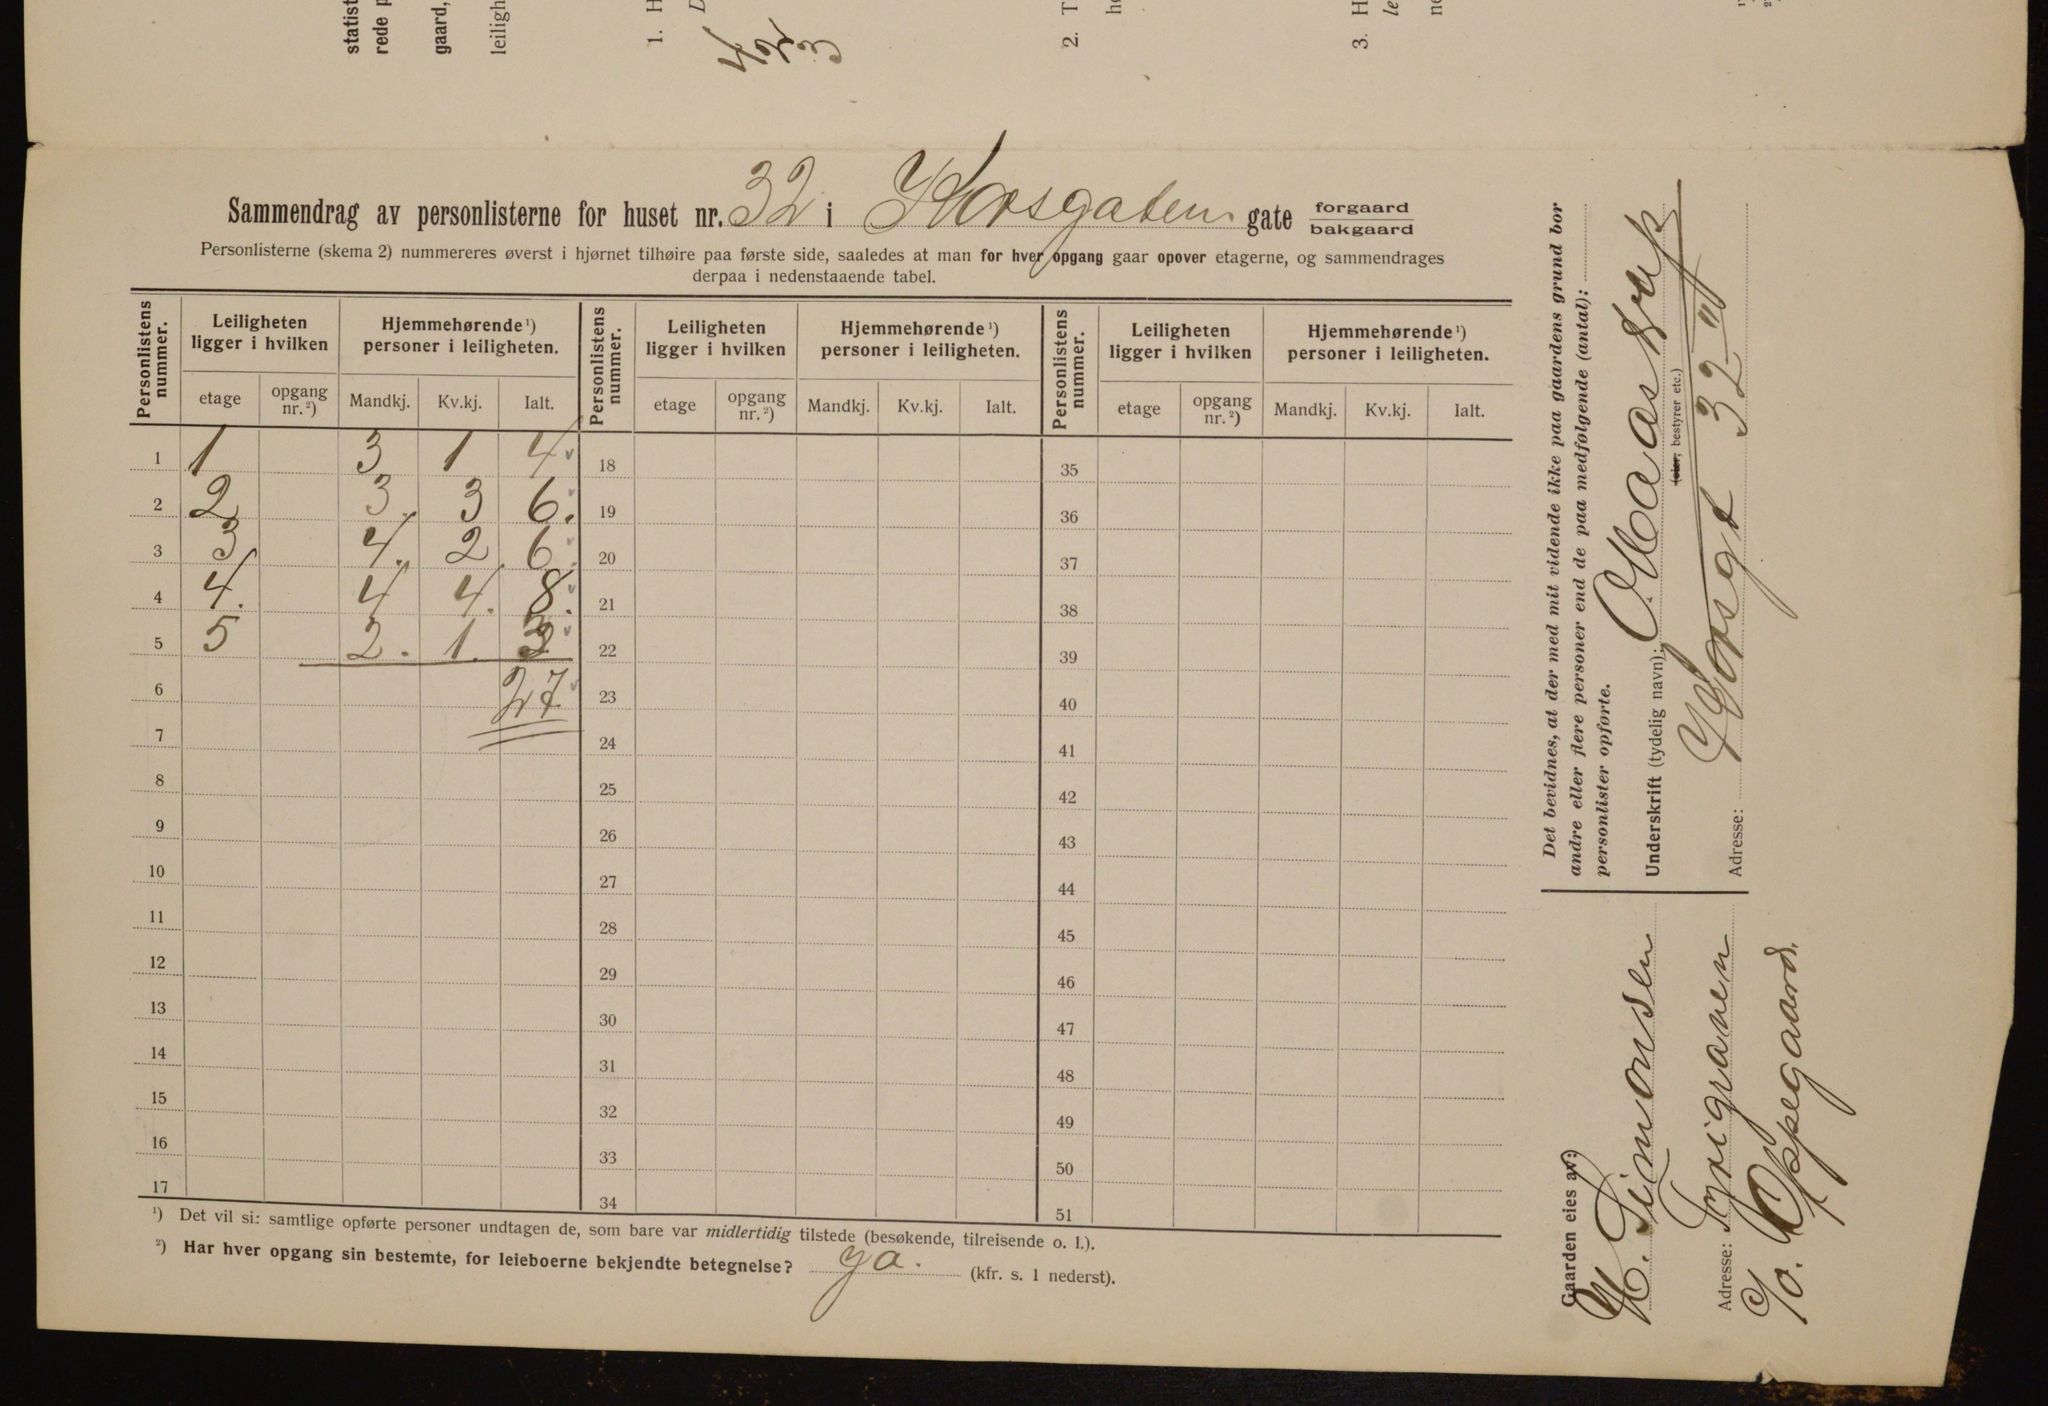 statist
rede p
gaard,
leiligh
1. H
D
4
2
3
2. T
he
3. H
le
ne
Sammendrag av personlisterne for huset nr. 32 i Korsgaten gate forgaard
bakgaard
Personlisterne (skema 2) nummereres øverst i hjørnet tilhøire paa første side, saaledes at man for hver opgang gaar opover etagerne, og sammendrages
derpaa i nedenstaaende tabel.
Personlistens nummer. Leiligheten ligger i hvilken Hjemmehørende ¹) personer i leiligheten. Personlistens nummer. Leiligheten ligger i hvilken Hjemmehørende ¹) personer i leiligheten. Personlistens nummer. Leiligheten ligger i hvilken Hjemmehørende ¹) personer i leiligheten.
etage opgang nr. ²) Mandkj. Kv.kj. Ialt. etage opgang nr. ²) Mandkj. Kv.kj. Ialt. etage opgang nr. ²) Mandkj. Kv.kj. Ialt.
1 1 3 1 4 18 35
2 2 3. 3 6. 19 36
3 3 4. 2 6. 20 37
4 4. 4 4. 8. 21 38
5 5 2. 1. 3 22 39
6 27 23 40
7 24 41
8 25 42
9 26 43
10 27 44
11 28 45
12 29 46
13 30 47
14 31 48
15 32 49
16 33 50
17 34 51
¹) Det vil si: samtlige opførte personer undtagen de, som bare var midlertidig tilstede (besøkende, tilreisende o. l.).
²) Har hver opgang sin bestemte, for leieboerne bekjendte betegnelse? ja. (kfr. s. 1 nederst).
Det bevidnes, at der med mit vidende ikke paa gaardens grund bor
andre eller flere personer end de paa medfølgende (antal):
personlister opførte.
Underskrift (tydelig navn):
(eier, bestyrer etc.)
Adresse: Korsgt 32 III
Gaarden eies av:
H. Simonsen
Adresse: Tyrigraven
p/o. Oppegaard.